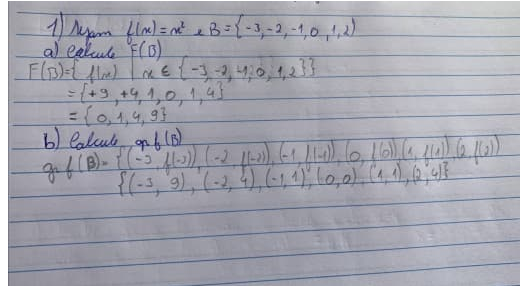 1) Sejam f(x) = x² e B = {-3, -2, -1, 0, 1, 2}
a) Calcule F(B)
F(B) = { f(x) | x ∈ {-3, -2, -1, 0, 1, 2}}
= {+9, +4, 1, 0, 1, 4}
= {0, 1, 4, 9}
b) Calcule gr f(B)
gr f(B) = {(-3, f(-3)), (-2, f(-2)), (-1, f(-1)), (0, f(0)) (1, f(1)), (2, f(2))
{(-3, 9), (-2, 4), (-1, 1), (0, 0), (1, 1), (2, 4)}